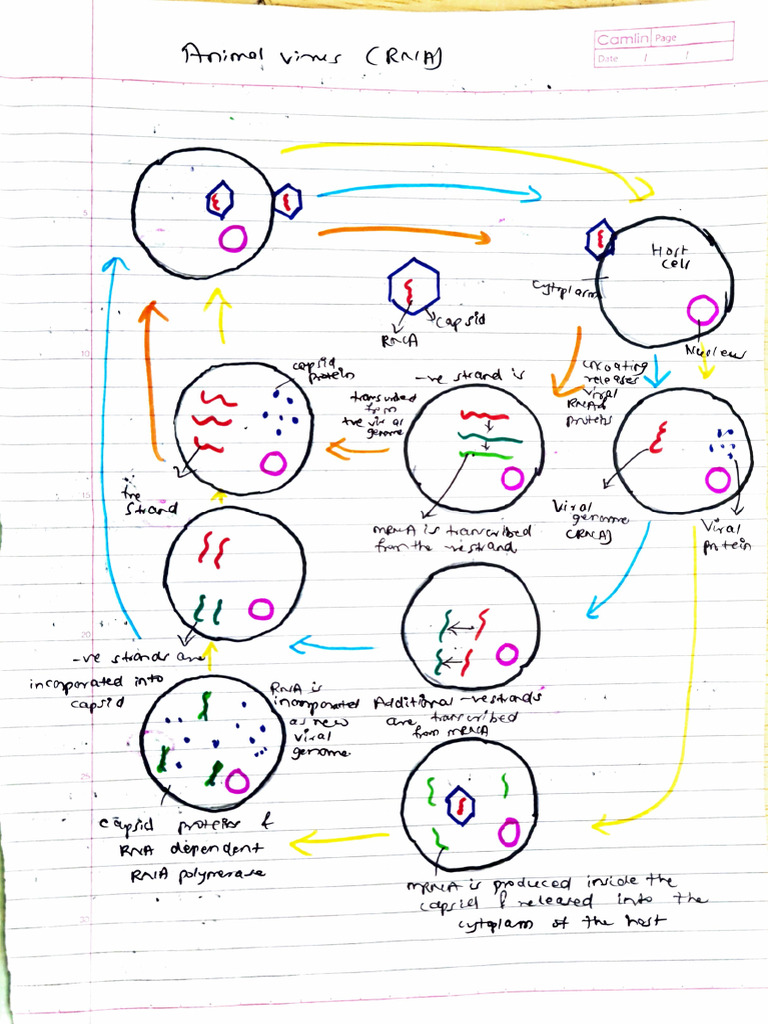 Animal virus (RNA)
Camlin Page
Date / /
Host
cell
Cytoplasm
Nucleus
Capsid
RNA
capsid
protein
-ve strand is
transcribed
from
+ve viral
genome
uncoating
releases
viral
RNA &
proteins
5
10
15
20
25
30
+ve
strand
mRNA is transcribed
from the -ve strand
Viral
genome
(RNA)
Viral
protein
-ve strands are
incorporated into
capsid
RNA is
incorporated
as new
viral
genome
Additional -ve strands
are transcribed
from mRNA
Capsid proteins &
RNA dependent
RNA polymerase
mRNA is produced inside the
capsid & released into the
cytoplasm of the host